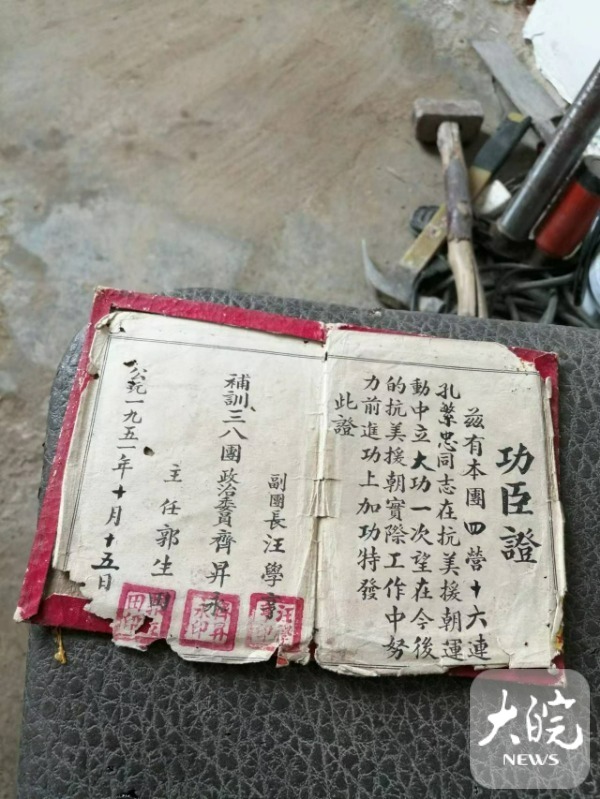 功臣證
兹有本團四營十六連
孔繁忠同志在抗美援朝運
動中立大功一次望在今後
的抗美援朝實際工作中努
力前進功上加功特發
此證
副團長汪學
補訓三八團政治委員齊昇
主任郭生田
公元一九五一年十月十五日
大皖
NEWS